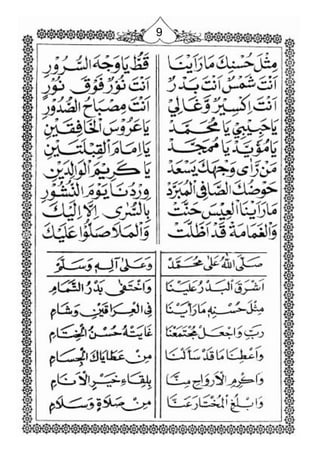 9
مِثْلَ حُسْنِكَ مَارَأَيْنَا قَطُّ يَا وَجْهَ السُّرُوْرِ
أَنْتَ شَمْسٌ أَنْتَ بَدْرٌ أَنْتَ نُوْرٌ فَوْقَ نُوْرٍ
أَنْتَ إِكْسِيْرٌ وَغَالِي أَنْتَ مِصْبَاحُ الصُّدُوْرِ
يَا حَبِيْبِيْ يَا مُحَمَّدْ يَا عَرُوْسَ الْخَافِقَيْنِ
يَا مُؤَيَّدْ يَا مُمَجَّدْ يَا إِمَامَ الْقِبْلَتَيْنِ
مَنْ رَأَى وَجْهَكَ يَسْعَدْ يَا كَرِيْمَ الْوَالِدَيْنِ
حَوْضُكَ الصَّافِى الْمُبَرَّدْ وِرْدُنَا يَوْمَ النُّشُوْرِ
مَارَأَيْنَا الْعِيْسَ حَنَّتْ بِالسُّرٰى إِلَّا إِلَيْكَ
وَالْغَمَامَةُ قَدْ أَظَلَّتْ وَالْمَلَا صَلُّوْا عَلَيْكَ
صَلَّى اللهُ عَلَى مُحَمَّدْ وَعَلَى آلِهِ وَسَلَّمْ
أَشْرَقَ الْبَدْرُ عَلَيْنَا وَاخْتَفَى بَدْرُ التَّمَامِ
مِثْلَ حُسْنِهِ مَارَأَيْنَا فِى الْعِرَاقَيْنِ وَشَامِ
رَبِّ وَاجْعَلْ مُجْتَمَعْنَا غَايَتُهُ حُسْنُ الْخِتَامِ
وَاعْطِنَا مَا قَدْ سَأَلْنَا مِنْ عَطَايَاكَ الْجِسَامِ
وَاكْرِمِ الْأَرْوَاحَ مِنَّا بِلِقَاءِ خَيْرِ الْأَنَامِ
وَابْلِغِ الْمُخْتَارَ عَنَّا مِنْ صَلَاةٍ وَسَلَامِ